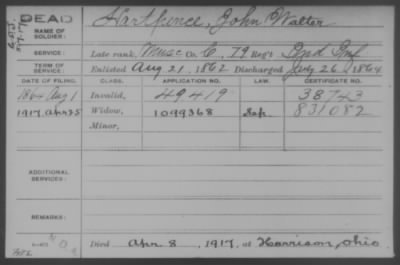 DEAD
NAME OF SOLDIER: Hartpence, John Walter
SERVICE: Late rank, Musc Co. C, 79 Reg't Ind Inf
TERM OF SERVICE: Enlisted Aug 21, 1862 Discharged July 26, 1864
DATE OF FILING. CLASS. APPLICATION NO. LAW. CERTIFICATE NO.
1864 Aug 1 Invalid, 49419 38743
1917. Apr 25 Widow, 1099368 831082
Minor,
ADDITIONAL SERVICES:
REMARKS:
Died Apr. 8, 1917, at Harrison, Ohio